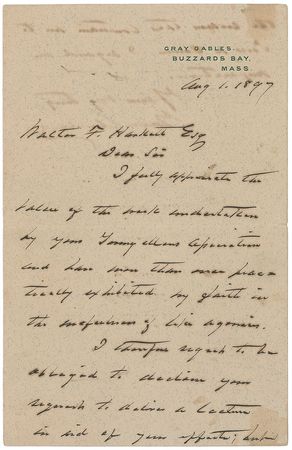 GRAY GABLES.
BUZZARDS BAY,
MASS.
Aug 1. 1897
Walter F. Esq
Dear Sir
I fully appreciate the
value of the work undertaken
by your Young Mens Association
and have more than once prac-
tically exhibited my faith in
the usefulness of like agencies.
I therefore regret to be
obliged to decline your
request to deliver a lecture
in aid of your efforts; but